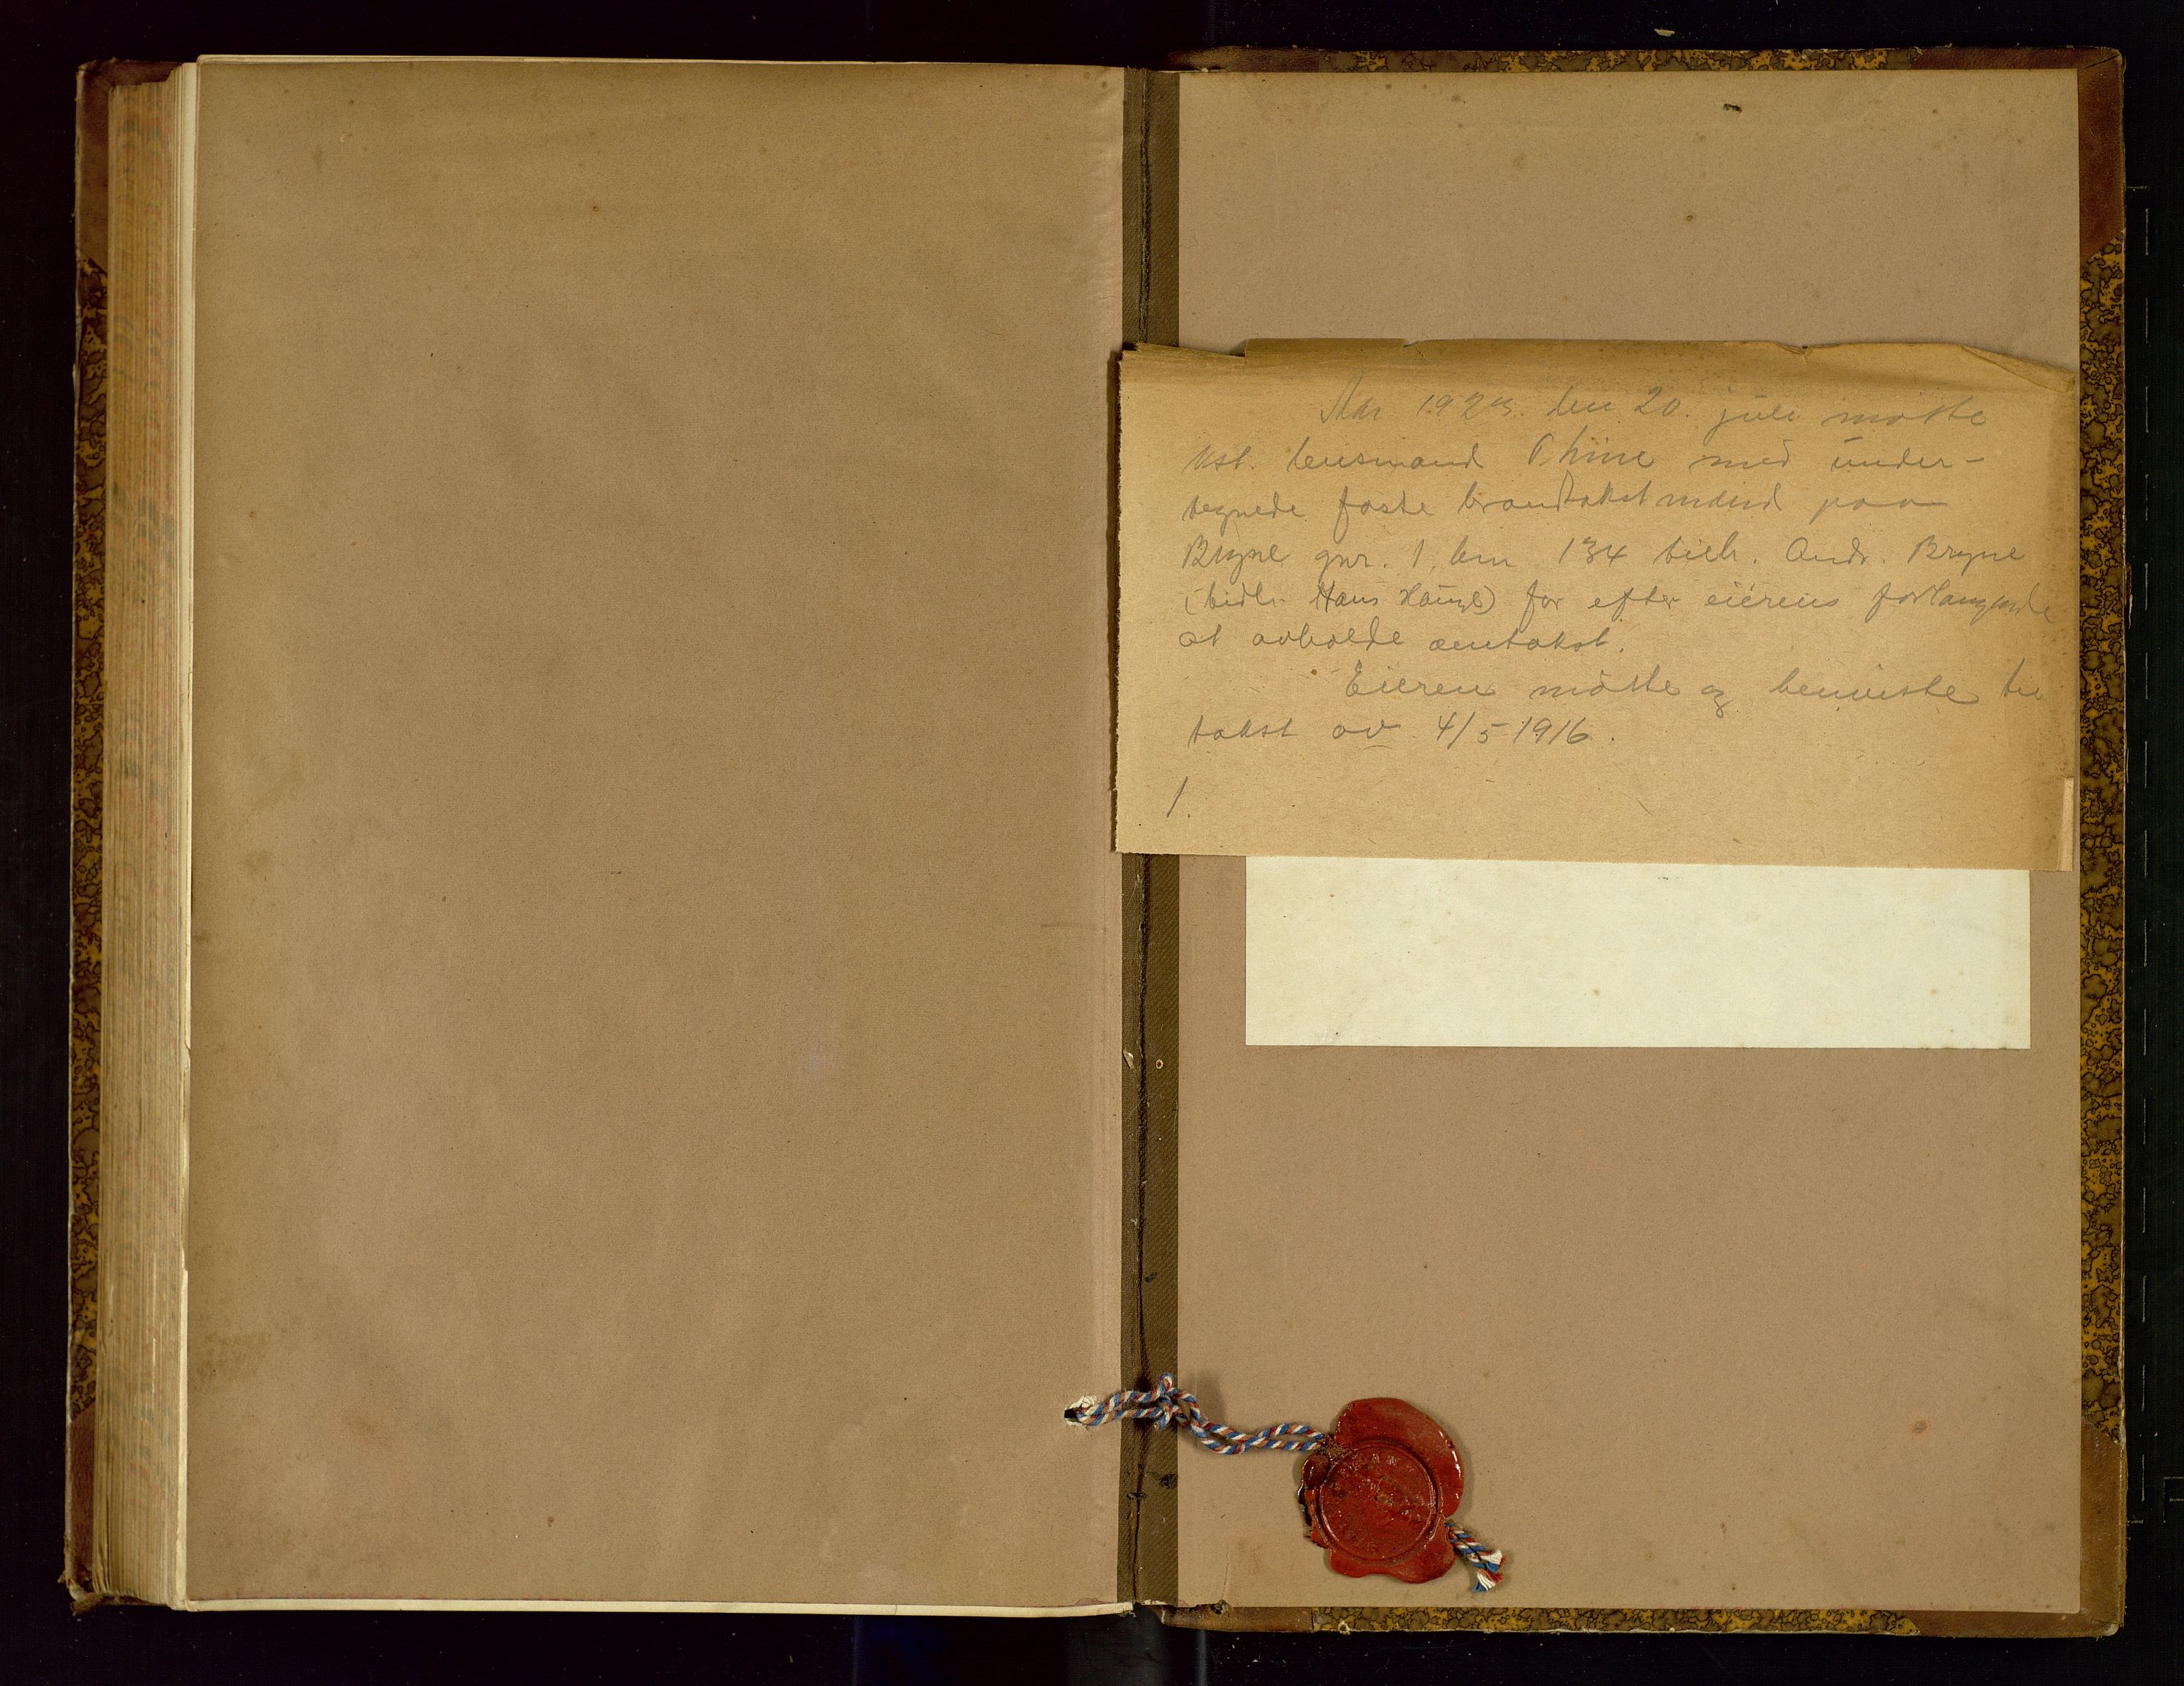 Aar 1923 den 20. juli møtte
kst. lensmand Thime med under-
tegnede faste brandtakstmænd paa
Bryne gnr. 1, bnr 134 tilh. Andr. Bryne
(tidl. Hans Hauge) for efter eierens forlangende
at avholde omtakst.
Eieren møtte og henviste til
takst av 4/5 1916.
1.